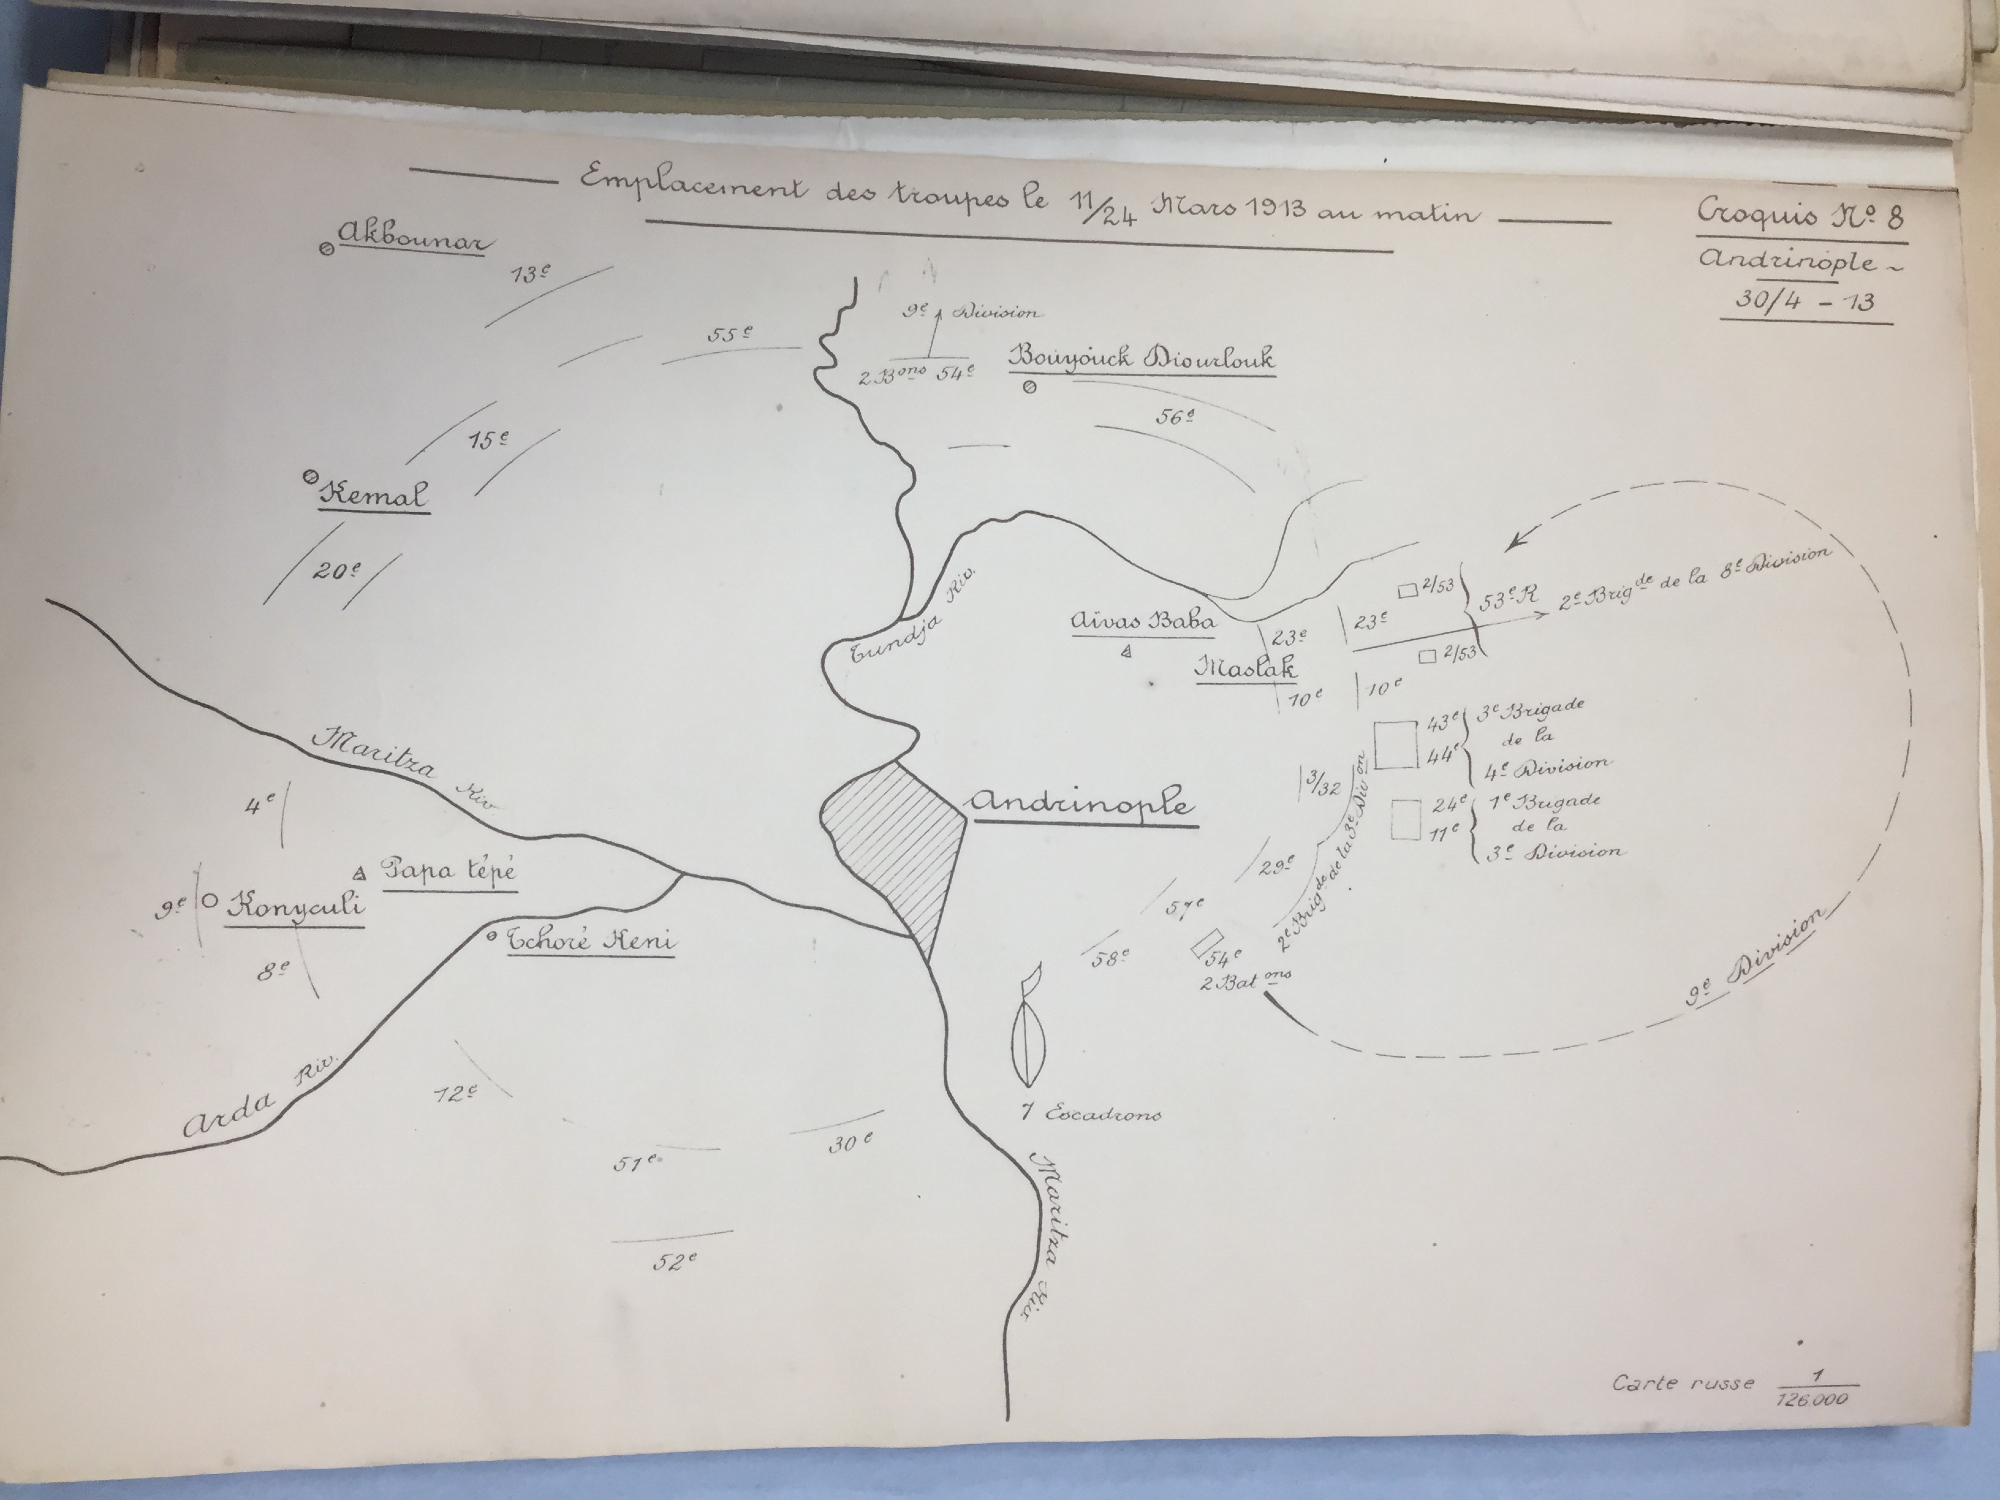 Emplacement des troupes le 11/24 Mars 1913 au matin
Croquis Nº 8
Andrinople
30/4 - 13
Akbounar
13e
55e
9e Division
2 Bons 54e
Bouyouck Diourlouk
56e
15e
Kemal
20e
Tundja Riv.
Aïvas Baba
Maslak
23e
23e
10e
10e
2/53
2/53
53e R
2e Brigde de la 8e Division
43e
44e
3e Brigade
de la
4e Division
24e
11e
1e Brigade
de la
3e Division
3/32
2e Brigde de la 3e Divon
29e
57e
58e
54e
2 Batons
9e Division
Andrinople
Maritza Riv
4e
Papa tépé
9e
Konyculi
8e
Tchoré Keni
Arda Riv.
12e
51e
30e
52e
7 Escadrons
Maritza Riv
Carte russe 1/126.000